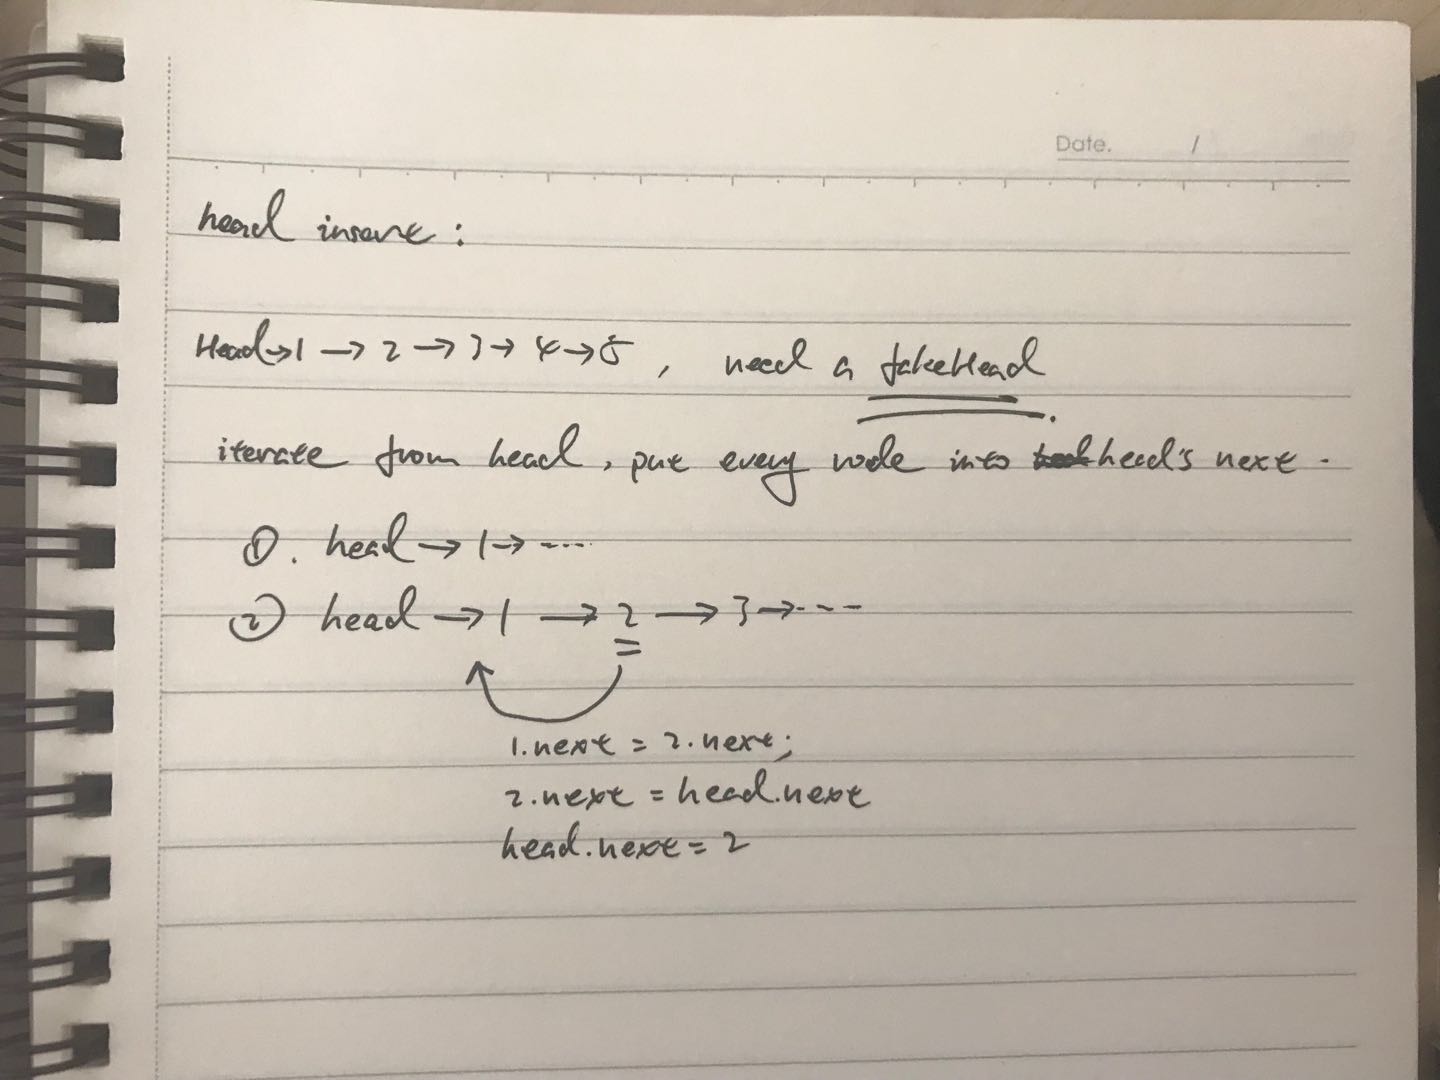 Date. /
head insert:
Head→1→2→3→4→5, need a fakeHead
iterate from head, put every node into head's next.
①. head→1→----
② head→1→2→3→---
1.next = 2.next;
2.next = head.next
head.next = 2